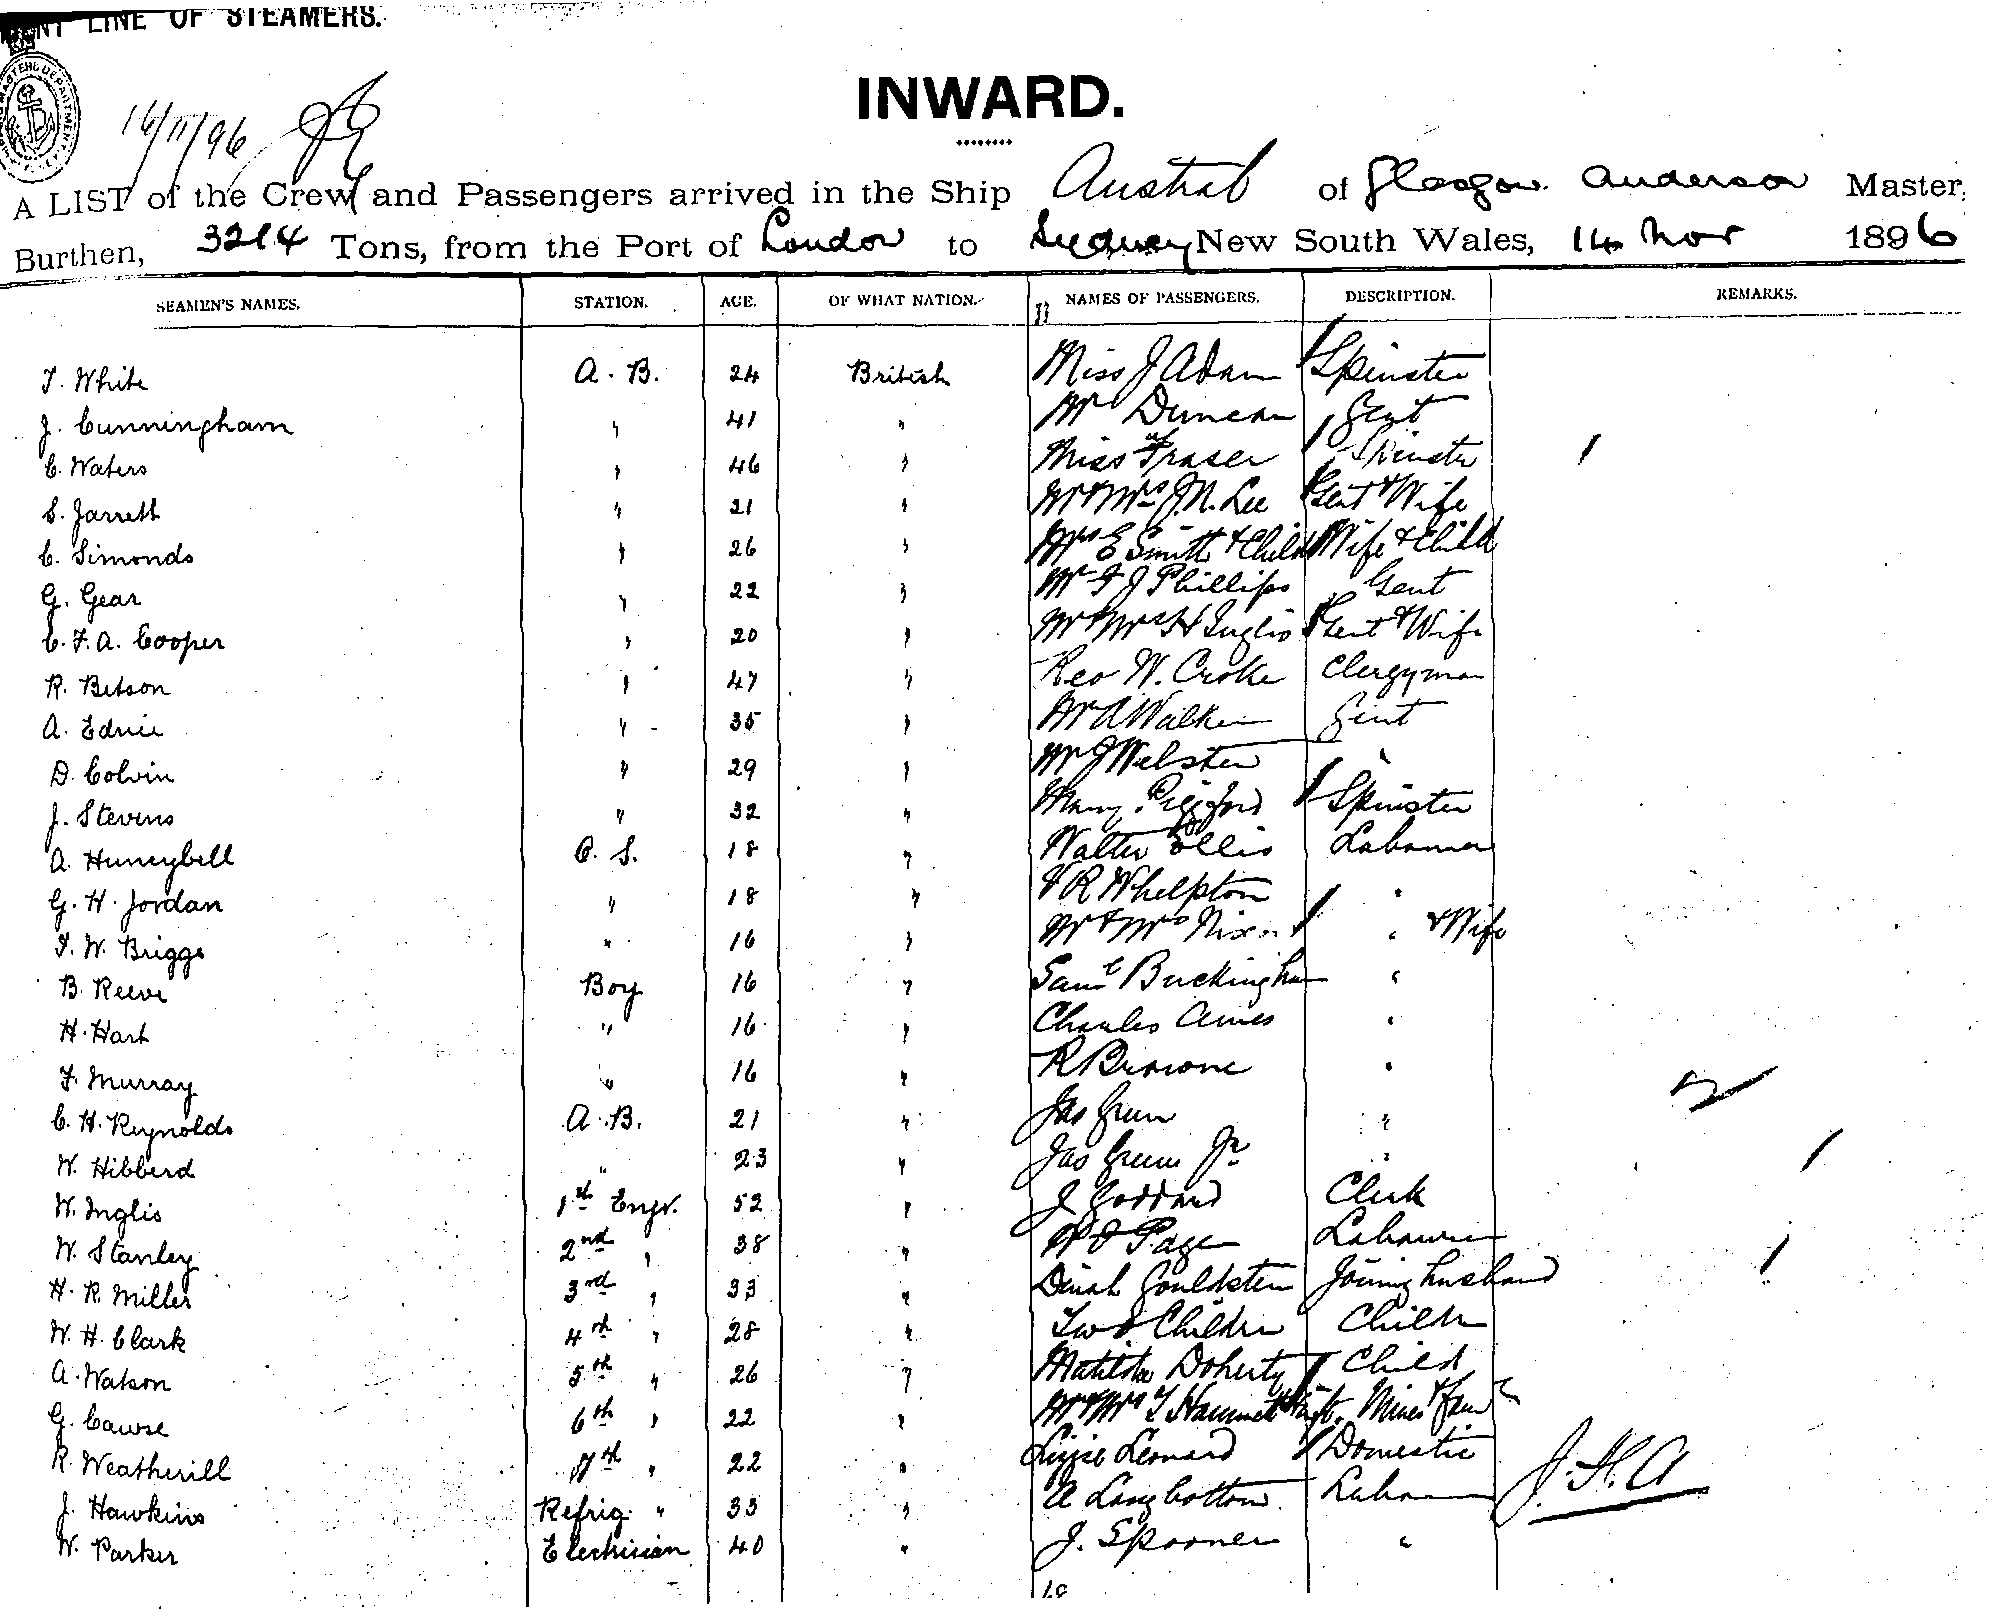 ENT LINE OF STEAMERS.
16/11/96
INWARD.
A LIST of the Crew and Passengers arrived in the Ship Austral of Glasgow. Anderson Master,
Burthen, 3214 Tons, from the Port of London to Sydney New South Wales, 14 Nov 1896
SEAMEN'S NAMES. STATION. AGE. OF WHAT NATION. NAMES OF PASSENGERS. DESCRIPTION. REMARKS.
T. White A. B. 24 British Miss J Adam Spinster
J. Cunningham " 41 " Mr Duncan Gent
C. Waters " 46 " Miss Fraser Spinster
S. Jarrett " 21 " Mr & Mrs J. N. Lee Gent & Wife
C. Simonds " 26 " Mrs E Smith & Child Wife & Child
G. Gear " 22 " Mr F J Phillips Gent
C. F. A. Cooper " 20 " Mr & Mrs H Inglis Gent & Wife
R. Betson " 47 " Rev W. Croke Clergyman
A. Ednie " 35 " Mr A Walker Gent
D. Colvin " 29 " Mr J Webster "
J. Stevens " 32 " Mary Spinster
A. Huneybell O. S. 18 " Walter Ellis Labourer
G. H. Jordan " 18 " V R Whelpton "
T. W. Briggs " 16 " Mr & Mrs Nixon " & Wife
B. Reeve Boy 16 " Saml Buckingham "
H. Hart " 16 " Charles Ames "
F. Murray " 16 " R Browne "
C. H. Reynolds A. B. 21 " Jas Green "
W. Hibberd " 23 " Jas Green Jr "
W. Inglis 1st Engr. 52 " J Goddard Clerk
W. Stanley 2nd " 38 " Page Labourer
H. R. Miller 3rd " 33 " Dinah Gouldsten Joining husband
W. H. Clark 4th " 28 " Two Children Childn
A. Watson 5th " 26 " Matilda Doherty Child
G. Cawse 6th " 22 " Mr & Mrs T Hammett Mines & fam
R. Weatherill 7th " 22 " Lizzie Leonard Domestic
J. Hawkins Refrig. " 33 " A Longbottom Labourer J. H. A
W. Parker Electrician 40 " J. Spooner "